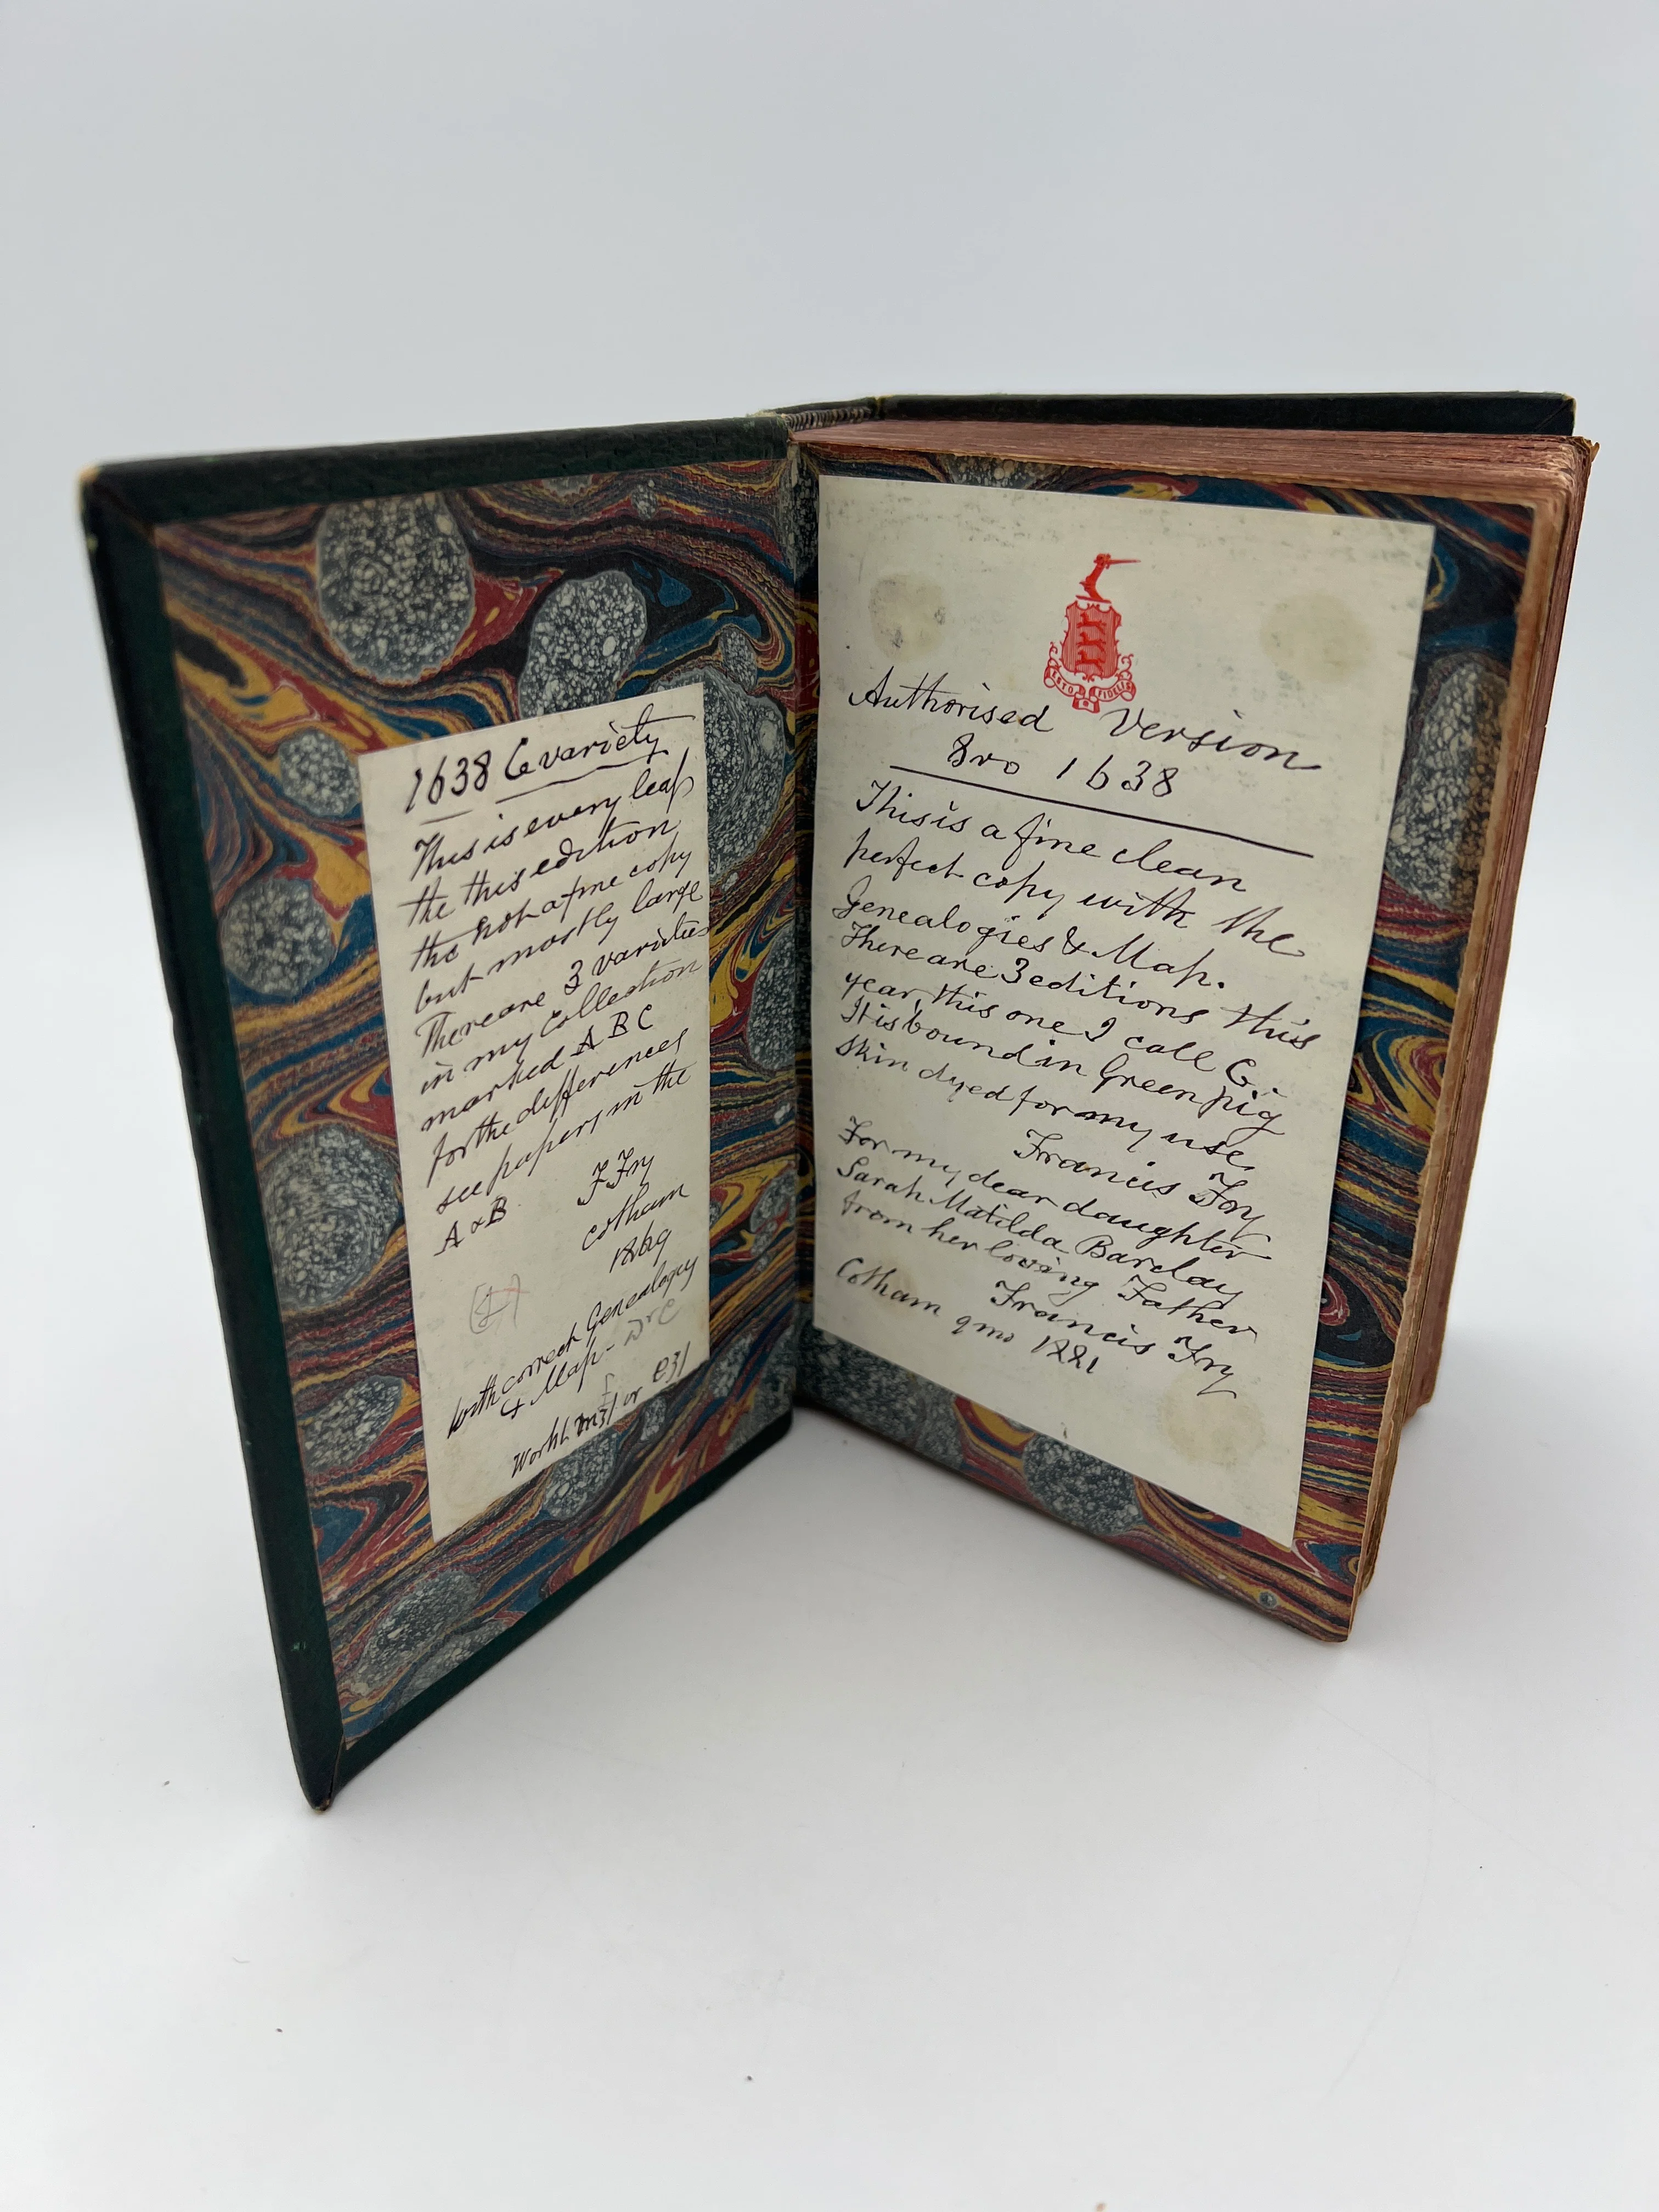 1638 C variety
This is every leaf
the this edition
tho not a fine copy
but mostly large
There are 3 varieties
in my Collection
marked A B C
for the differences
see papers in the
A & B
F Fry
Cotham
1869
with correct Genealogy
& Map -
Worth
ESTO FIDELIS
Authorised Version
8vo 1638
This is a fine clean
perfect copy with the
Genealogies & Map.
There are 3 editions this
year, this one I call C.
It is bound in Green pig
skin dyed for my use.
Francis Fry
For my dear daughter
Sarah Matilda Barclay
from her loving Father
Francis Fry
Cotham 9mo 1881